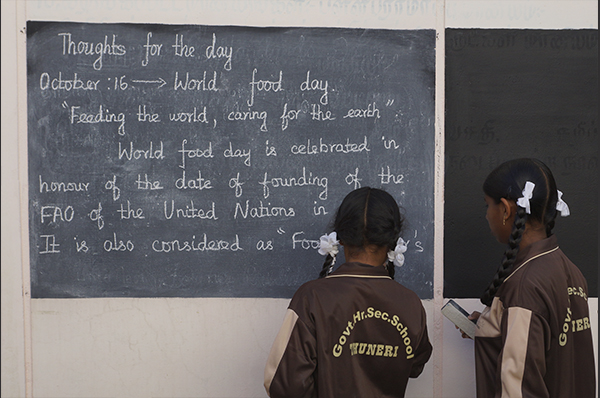 Thoughts for the day
October : 16 → World food day.
"Feeding the world, caring for the earth"
World food day is celebrated in
honour of the date of founding of the
FAO of the United Nations in
It is also considered as "Foo r's
Govt.Hr.Sec.School
Govt.H